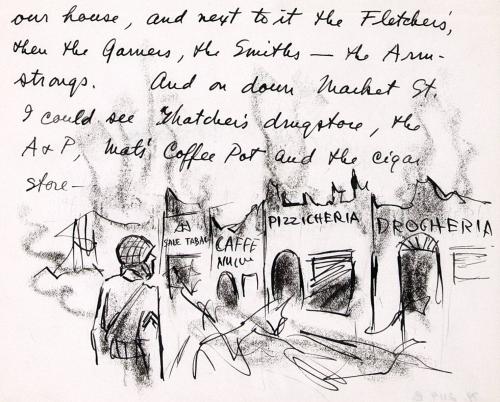 our house, and next to it the Fletchers',
then the Garners, the Smiths — the Arm-
strongs. And on down Market St.
I could see Thatcher's drugstore, the
A & P, Mat's Coffee Pot and the cigar
store —
PIZZICHERIA
DROGHERIA
SALE TABAC
CAFFE